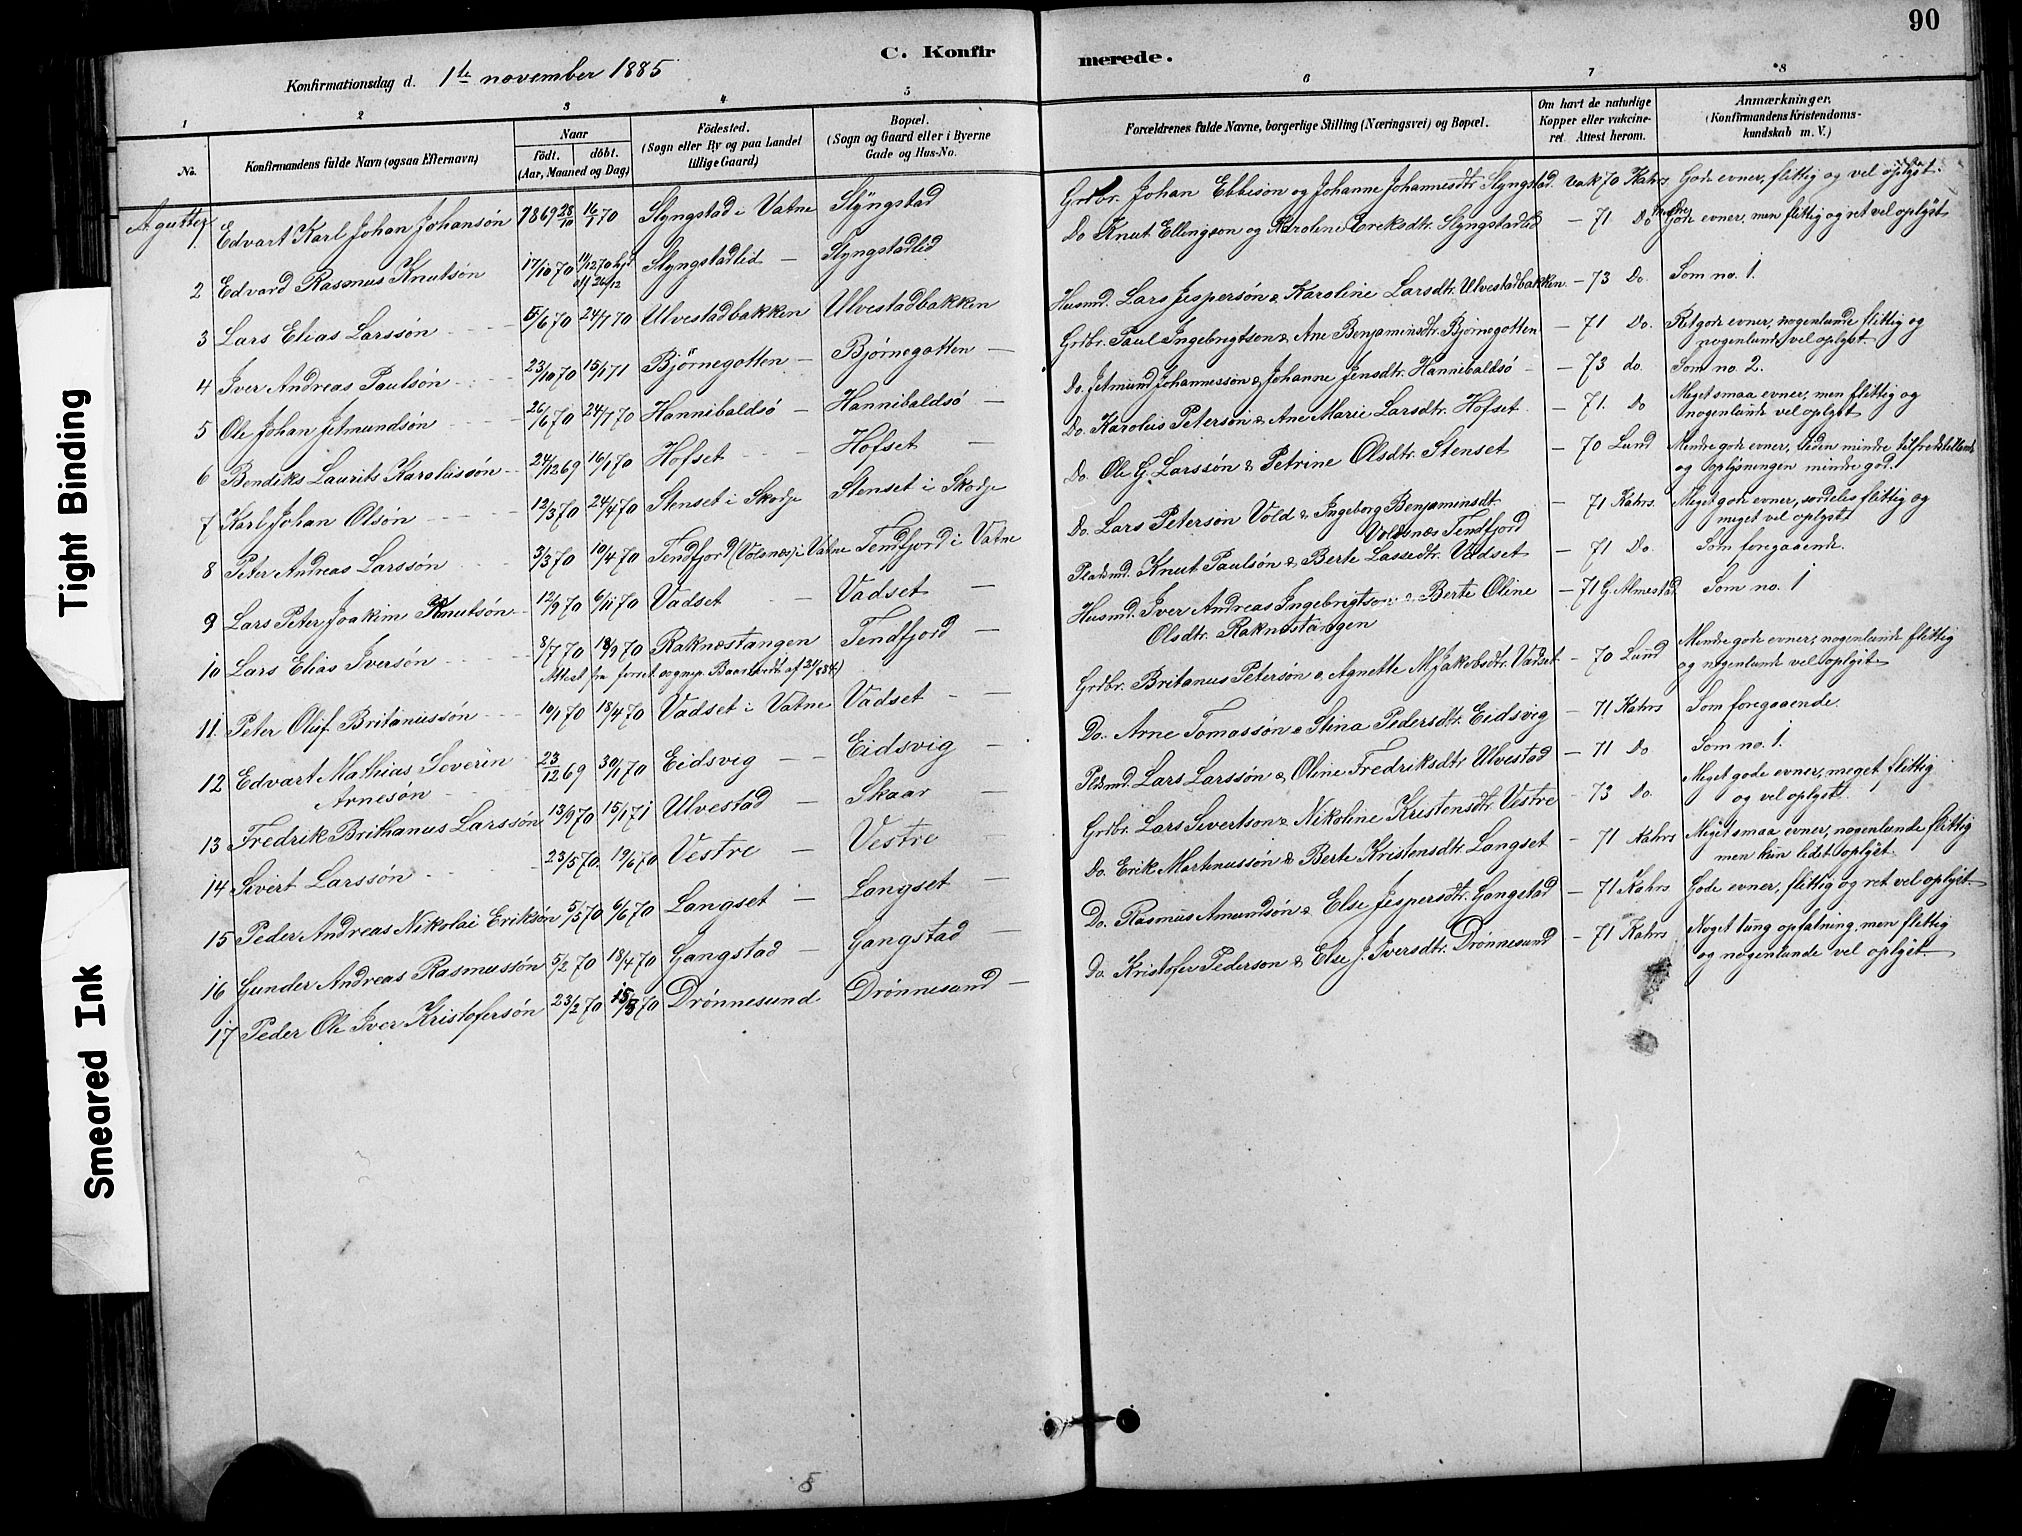 90
C. Konfir
merede.
Konfirmationsdag d. 1te november 1885
1
2
3
4
5
6
7
8
No.
Konfirmandens fulde Navn (ogsaa Efternavn)
Naar
födt. döbt.
(Aar, Maaned og Dag)
Födested.
(Sogn eller By og paa Landet
tillige Gaard)
Bopæl.
(Sogn og Gaard eller i Byerne
Gade og Hus-No.
Forældrenes fulde Navne, borgerlige Stilling (Næringsvei) og Bopæl.
Om havt de naturlige
Kopper eller vakcine-
ret. Attest herom.
Anmærkninger.
(Konfirmandens Kristendoms-
kundskab m. V.)
A gutter
1 Edvart Karl Johan Johansön 1869 28/10 16/1 70 Slyngstad i Vatne Slyngstad Grdbr. Johan Ebbesön og Johanne Johannesdtr. Slyngstad. vak 70 Kahrs Gode evner, flittig og vel oplyst.
2 Edvard Rasmus Knutsön 17/10 70 Slyngstadlid — Slyngstadlid Do Knut Ellingsön og Karoline Eriksdtr Slyngstadlid — 71 Do Mindre gode evner, men flittig og ret vel oplyst
3 Lars Elias Larssön 5/6 70 24/7 70 Ulvestadbakken Ulvestadbakken Husmd. Lars Jespersön & Karoline Larsdtr. Ulvestadbakken. — 73 Do. Som no. 1.
4 Iver Andreas Paulsön 23/10 70 15/1 71 Björnegotten — Björnegotten — Grdbr. Paul Ingebrigtson & Ane Benjaminsdtr. Björnegotten — 71 Do. Ret gode evner, nogenlunde flittig og
nogenlunde vel oplyst.
5 Ole Johan Jetmundsön 26/6 70 24/7 70 Hannibaldsö — Hannibaldsö — Do. Jetmund Johannessön & Johanne Jensdtr. Hannibaldsö — 73 do. Som no 2.
6 Bendiks Laurits Karolussön 24/12 69 16/1 70 Hofset Hofset — Do. Karolus Petersön & Ane Marie Larsdtr. Hofset. — 71. Do Meget smaa evner, men flittig og
nogenlunde vel oplyst
7 Karl Johan Olsön 12/3 70 24/4 70 Stenset i Skodje Stenset i Skodje Do. Ole G. Larssön & Petrine Olsdtr. Stenset — 70 Lund Mindre gode evner, fliden mindre tilfredstillende
og oplysningen mindre god.
8 Peter Andreas Larssön 3/3 70 10/4 70 Tendfjord (Volsnæs) i Vatne Tendfjord i Vatne Do. Lars Petersön Vold & Ingeborg Benjaminsdt.
Voldsnæs Tendfjord — 71 Kahrs. Meget gode evner, særdeles flittig og
meget vel oplyst
9 Lars Peter Joakim Knutsön 12/9 70 6/11 70 Vadset — Vadset — Pladsmd. Knut Paulsön & Berte Lassedtr. Vadset — 71 Do. Som foregaaende.
10 Lars Elias Iversön 8/7 70 18/9 70 Raknæstangen Tendfjord — Husmd. Iver Andreas Ingebrigtson & Berte Oline
Olsdtr. Raknestangen — 71 G. Almestad Som no. 1
11 Peter Oluf Britanussön 10/1 70 18/4 70 Vadset i Vatne Vadset — Grdbr. Britanus Petersön & Agnette M. Jakobsdtr. Vadset — 70 Lund Mindre gode evner, nogenlunde flittig
og nogenlunde vel oplyst
12 Edvart Mathias Severin
Arnesön 23/12 69 30/1 70 Eidsvig — Eidsvig — Do. Arne Tomassön & Stina Pedersdtr. Eidsvig — 71 Kahrs Som foregaaende.
13 Fredrik Brithanus Larssön 13/9 70 15/1 71 Ulvestad — Skaar — Pldsmd. Lars Larssön & Oline Fredriksdtr. Ulvestad — 71 Do Som no. 1.
14 Sivert Larssön 23/5 70. 19/6 70 Vestre — Vestre — Grdbr. Lars Sivertson & Nikoline Kristensdtr. Vestre — 73 Do. Meget gode evner, meget flittig
og vel oplyst.
15 Peder Andreas Nikolai Eriksön 5/5 70 6/6 70 Langset — Langset — Do. Erik Martinussön & Berte Kristensdtr Langset — 71 Kahrs Meget smaa evner, nogenlunde flittig
men kun lidet oplyst.
16 Gunder Andreas Rasmussön 5/2 70 18/4 70 Gangstad — Gangstad — Do. Rasmus Amundsön & Else Jespersdtr. Gangstad — 71 Kahrs. Gode evner, flittig og ret vel oplyst.
17 Peder Ole Iver Kristofersön 23/2 70 Drönnesund Drönnesund — Do. Kristofer Pederson & Else J. Iversdtr. Drönnesund — 71 Kahrs Noget tung opfatning, men flittig
og nogenlunde vel oplyst.
Tight Binding
Smeared Ink